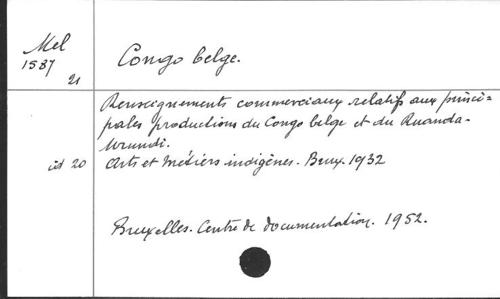 Mel
1587
21
Congo belge.
Renseignements commerciaux relatifs aux princi-
pales productions du Congo belge et du Ruanda-
Urundi.
id 20 Arts et Métiers indigènes. Brux. 1932
Bruxelles. Centre de documentation. 1952.